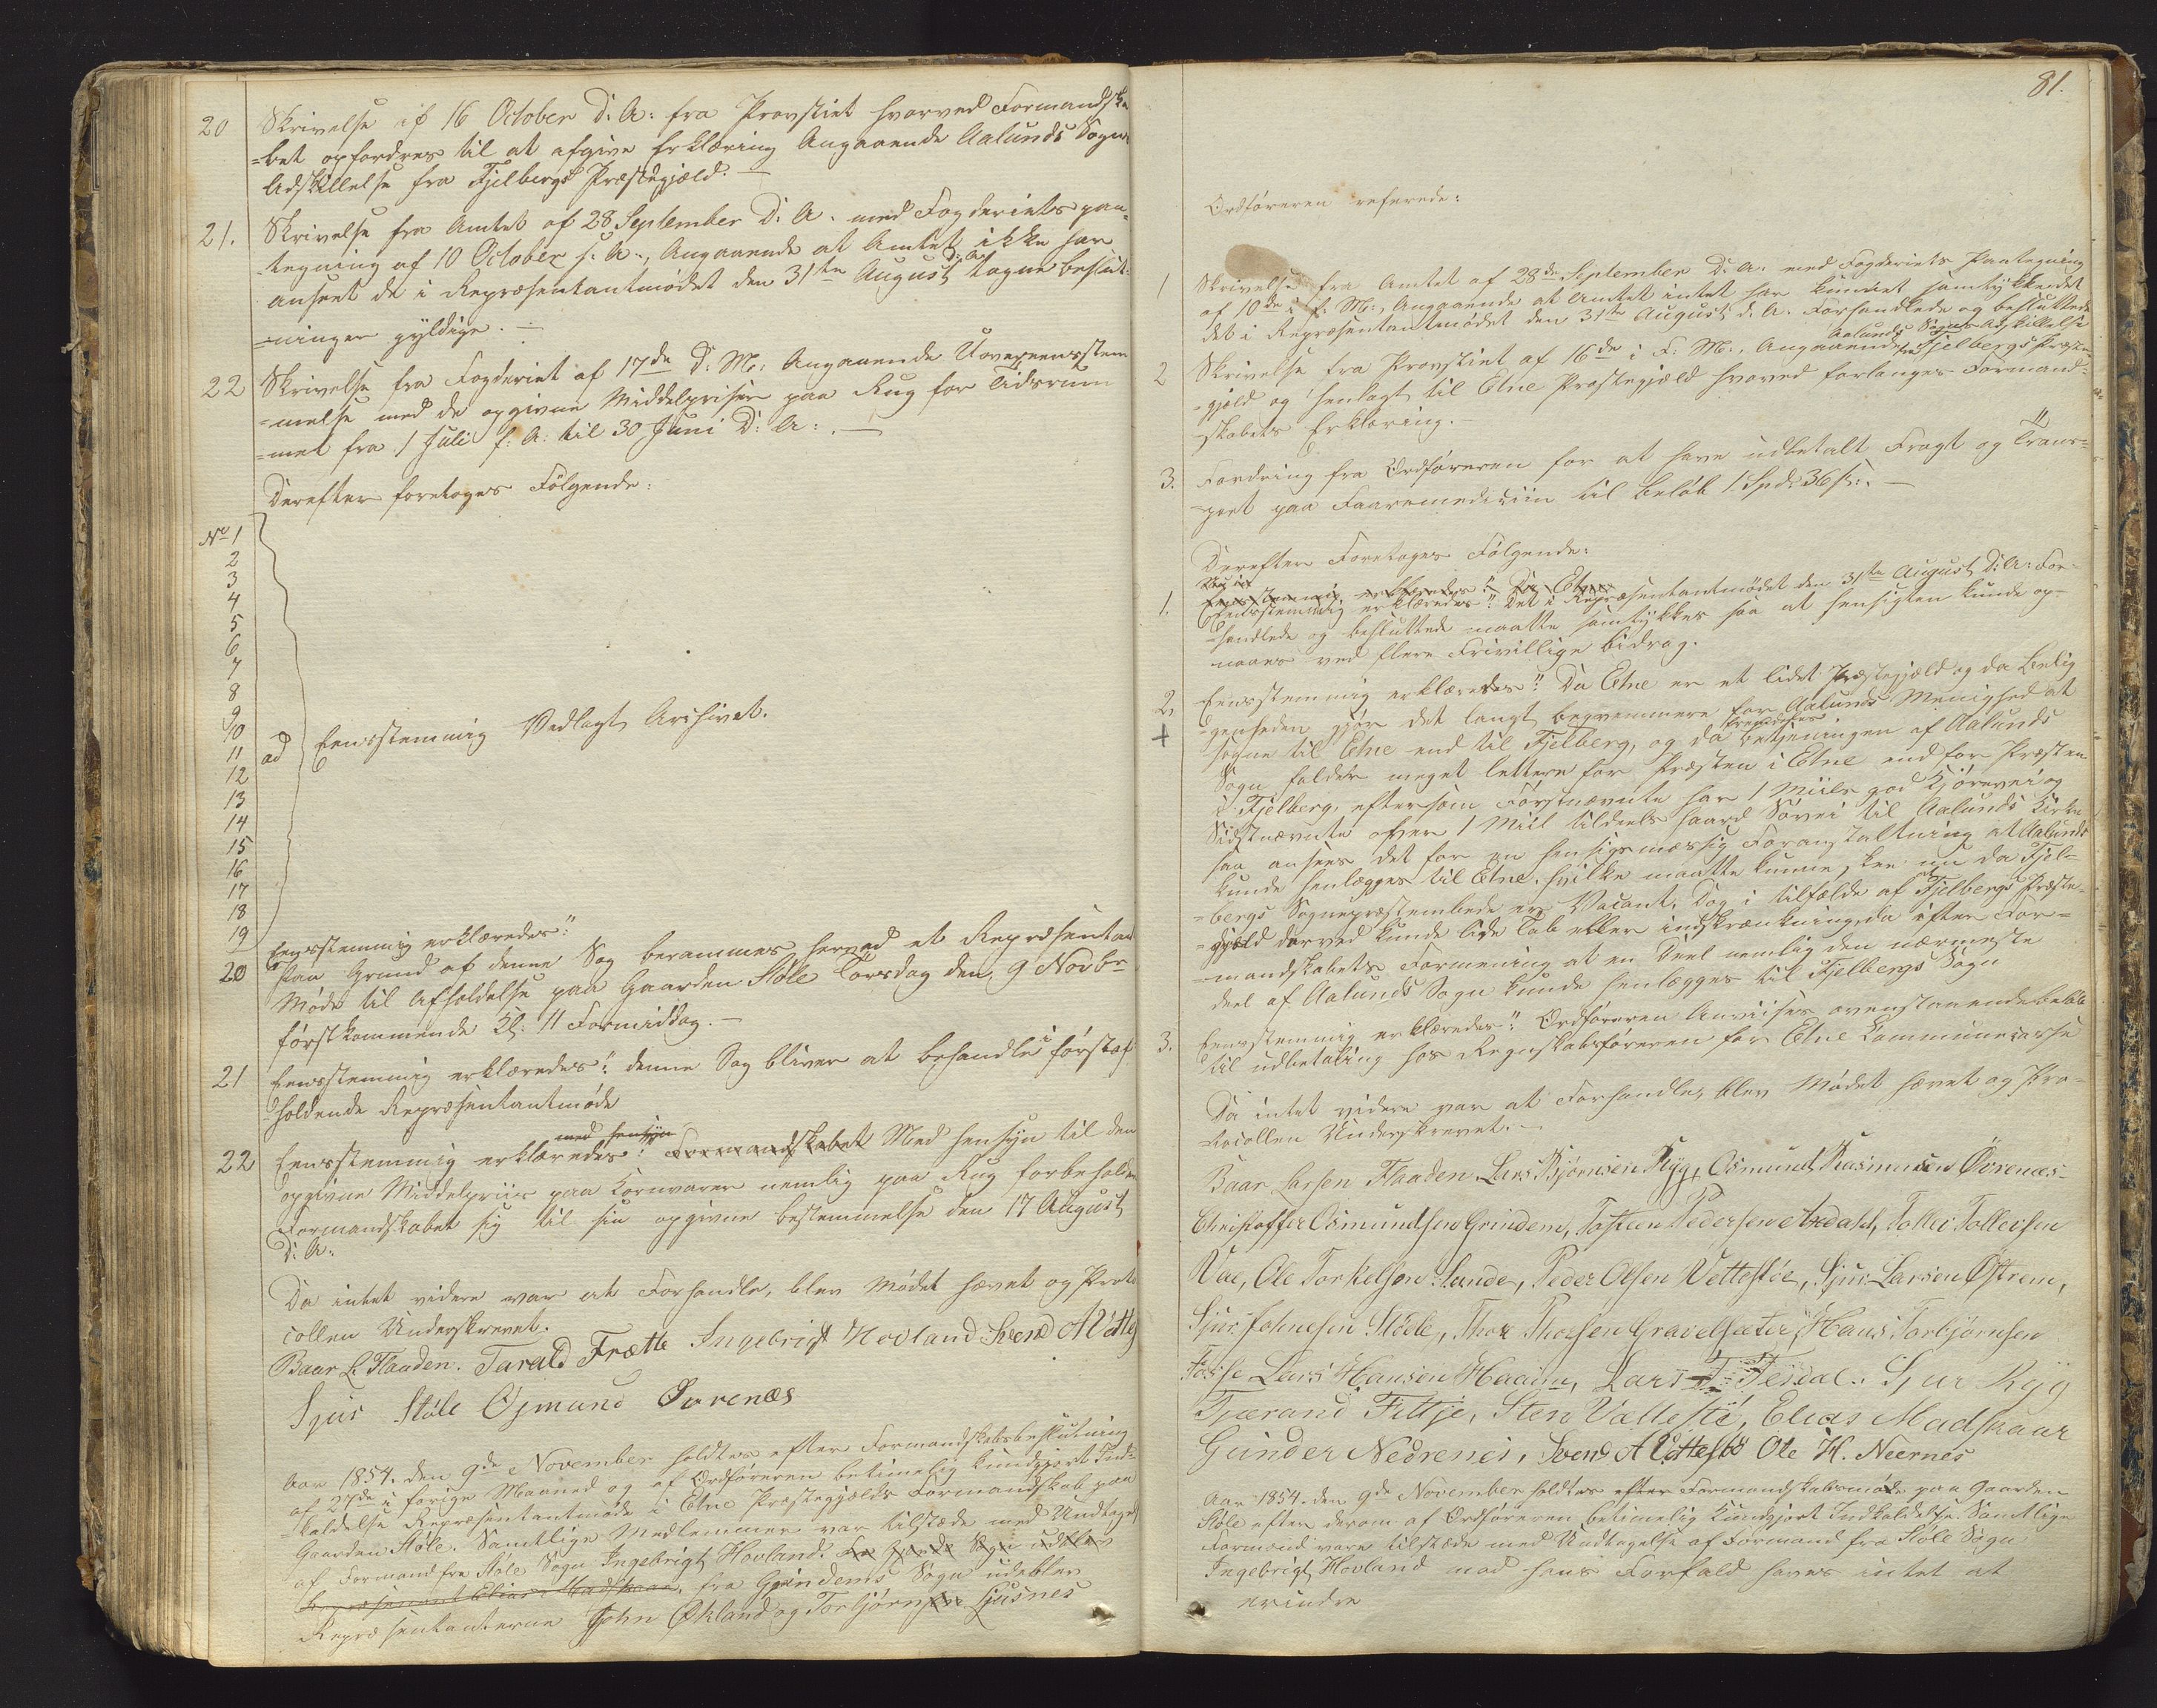 20 Skrivelse af 16 October D: A: fra Provstiet hvorved Formandska
=bet opfordres til at afgive Erklæring Angaaende Aalunds Sogns
Adskillelse fra Fjelbergs Præstegjæld. —
21. Skrivelse fra Amtet af 28 September D: A: med Fogderiets paa=
tegning af 10 October s: A:, Angaaende at Amtet ikke har
anseet de i Repræsentantmødet den 31te August d. A. tagne beslut=
=ninger gyldige. —
22 Skrivelse fra Fogderiet af 17de D: M: Angaaende Uoverensstem
=melse med de opgivne Middelpriser paa Rug for Tidsrum
=met fra 1 Juli f: A: til 30 Juni D: A: . —
Derefter foretoges Følgende:
No 1
2
3
4
5
6
7
8
9
10
11 ad Eensstemmig Vedlagt Archivet.
12
13
14
15
16
17
18
19
Eensstemmig erklæredes:"
20 Paa Grund af denne Sag berammes herved et Repræsentan
Møde til Afholdelse paa Gaarden Støle Torsdag den 9 Novbr
førstkommende Kl: 11 Formiddag. —
21 Eensstemmig erklæredes": denne Sag bliver at behandle i først af
=holdende Repræsentantmøde
22 Eensstemmig erklæredes": med hensyn Formandskabet Med hensyn til den
opgivne Middelpriis paa Kornvarer nemlig paa Rug forbeholder
Formandskabet sig til sin opgivne bestemmelse den 17 August
D: A:
Da intet videre var at Forhandle, blev Mødet hævet og Proto
collen Underskrevet.
Baar L. Flaaden. Tarald Frætte Ingebrigt Hovland Svend A Vatte
Sjur Støle Osmund Øvrenæs
Aar 1854. den 9de November holdtes efter Formandskabsbeslutning
af 27de i forige Maaned og af Ordføreren betimelig kundgjort Ind=
kaldelse Repræsentantmøde i Etne Præstegjælds Formandskab paa
Gaarden Støle. Samtlige Medlemmer var tilstæde med Undtagelse
af Formand fra Støle Sogn Ingebrigt Hovland. Sogn udblev
Repræsentant Elias Madskaar. fra Grindems Sogn udeblev
Repræsentanterne John Økland og Torbjørn Ljusnes
81.
Ordføreren referede:
1 Skrivelse fra Amtet af 28de September D: A: med Fogderiets Paategning
af 10de i f: M:, Angaaende at Amtet intet har kundet samtykke det
det i Repræsentantmødet den 31te August d. A. Forhandlede og besluttede
2 Skrivelse fra Provstiet af 16de i F: M:, Angaaende Aalunds Sogns Adskillelse fra Fjelbergs Præste=
=gjæld og henlagt til Etne Præstegjæld hvorved forlanges Formand=
skabets Erklæring. —
3. Fordring fra Ordføreren for at have udbetalt Fragt og Trans=
=port paa Faaremediciin til beløb 1 Spd: 36 s:. —
Derefter Foretoges Følgende:
Eensstemmig erklæredes": Da Etne
1. Eensstemmig erklæredes": Det i Repræsentantmødet den 31te August D: A: For=
=handlede og besluttede maatte samtykkes saa at hensigten kunde op=
naaes ved flere Frivillige bidrag.
2. Eensstemmig erklæredes": Da Etne er et lidet Præstegjæld og da Belig
=genheden gjør det langt beqvemmere for Aalunds Menighed at
søgne til Etne end til Fjelberg, og da betjeningen af Aalunds
Sogn falder meget lettere for Præsten i Etne end for Præsten
i Fjelberg, eftersom Førstnævnte har 1 Miils god Kjørevei og
Sidstnævnte over 1 Miil tildeels haard Søvei til Aalunds Kirke
saa ansees det for en hensigsmæssig Foranstaltning at Aalunds
kunde henlægges til Etne, hvilke maatte kunne skee nu da Fjel=
=bergs Sognepræstembede er Vacant. Dog i tilfælde af at Fjelbergs Præste=
=gjæld derved kunde lide Tab eller indskrænkning, da efter For=
=mandskabets Formening at en Deel nemlig den nærmeste
deel af Aalunds Sogn kunde henlægges til Fjelbergs Sogn
3. Eensstemmig erklæredes": Ordføreren Anviises ovenstaaende beløb
til udbetaling hos Regnskabsføreren for Etne Kommunecasse
Da intet videre var at Forhandle, blev Mødet hævet og Pro=
tocollen Underskrevet. —
Baar Larsen Flaaden. Lars Bjørnsen Ryg, Osmund Rasmusen Øvrenæs
Christoffer Osmundsen Grindem, Tosteen Pedersen Axdahl, Tollei Tolleifsen
Vae, Ole Torkelsen Sande, Peder Olsen Vettestøe, Sjur Larsen Østrem,
Sjur Johnesen Støele, Thor Thorsen Gravelsæter, Hans Torbjørnsen
Fosse Lars Hansen Haaim, Lars T. Tesdal. Sjur Ryg
Tjærand Fittje, Sten Vattestø, Elias Madskaar
Gunder Nedrenes, Svend A Vattestø Ole H. Neernes
Aar 1854. den 9de November holdtes efter Formandskabsmøde paa Gaarden
Støle efter derom af Ordføreren betimelig Kundgjort Indkaldelse. Samtlige
Formænd vare tilstæde med Undtagelse af Formand fra Støle Sogn
Ingebrigt Hovland mod hans Forfald haves intet at
erindre